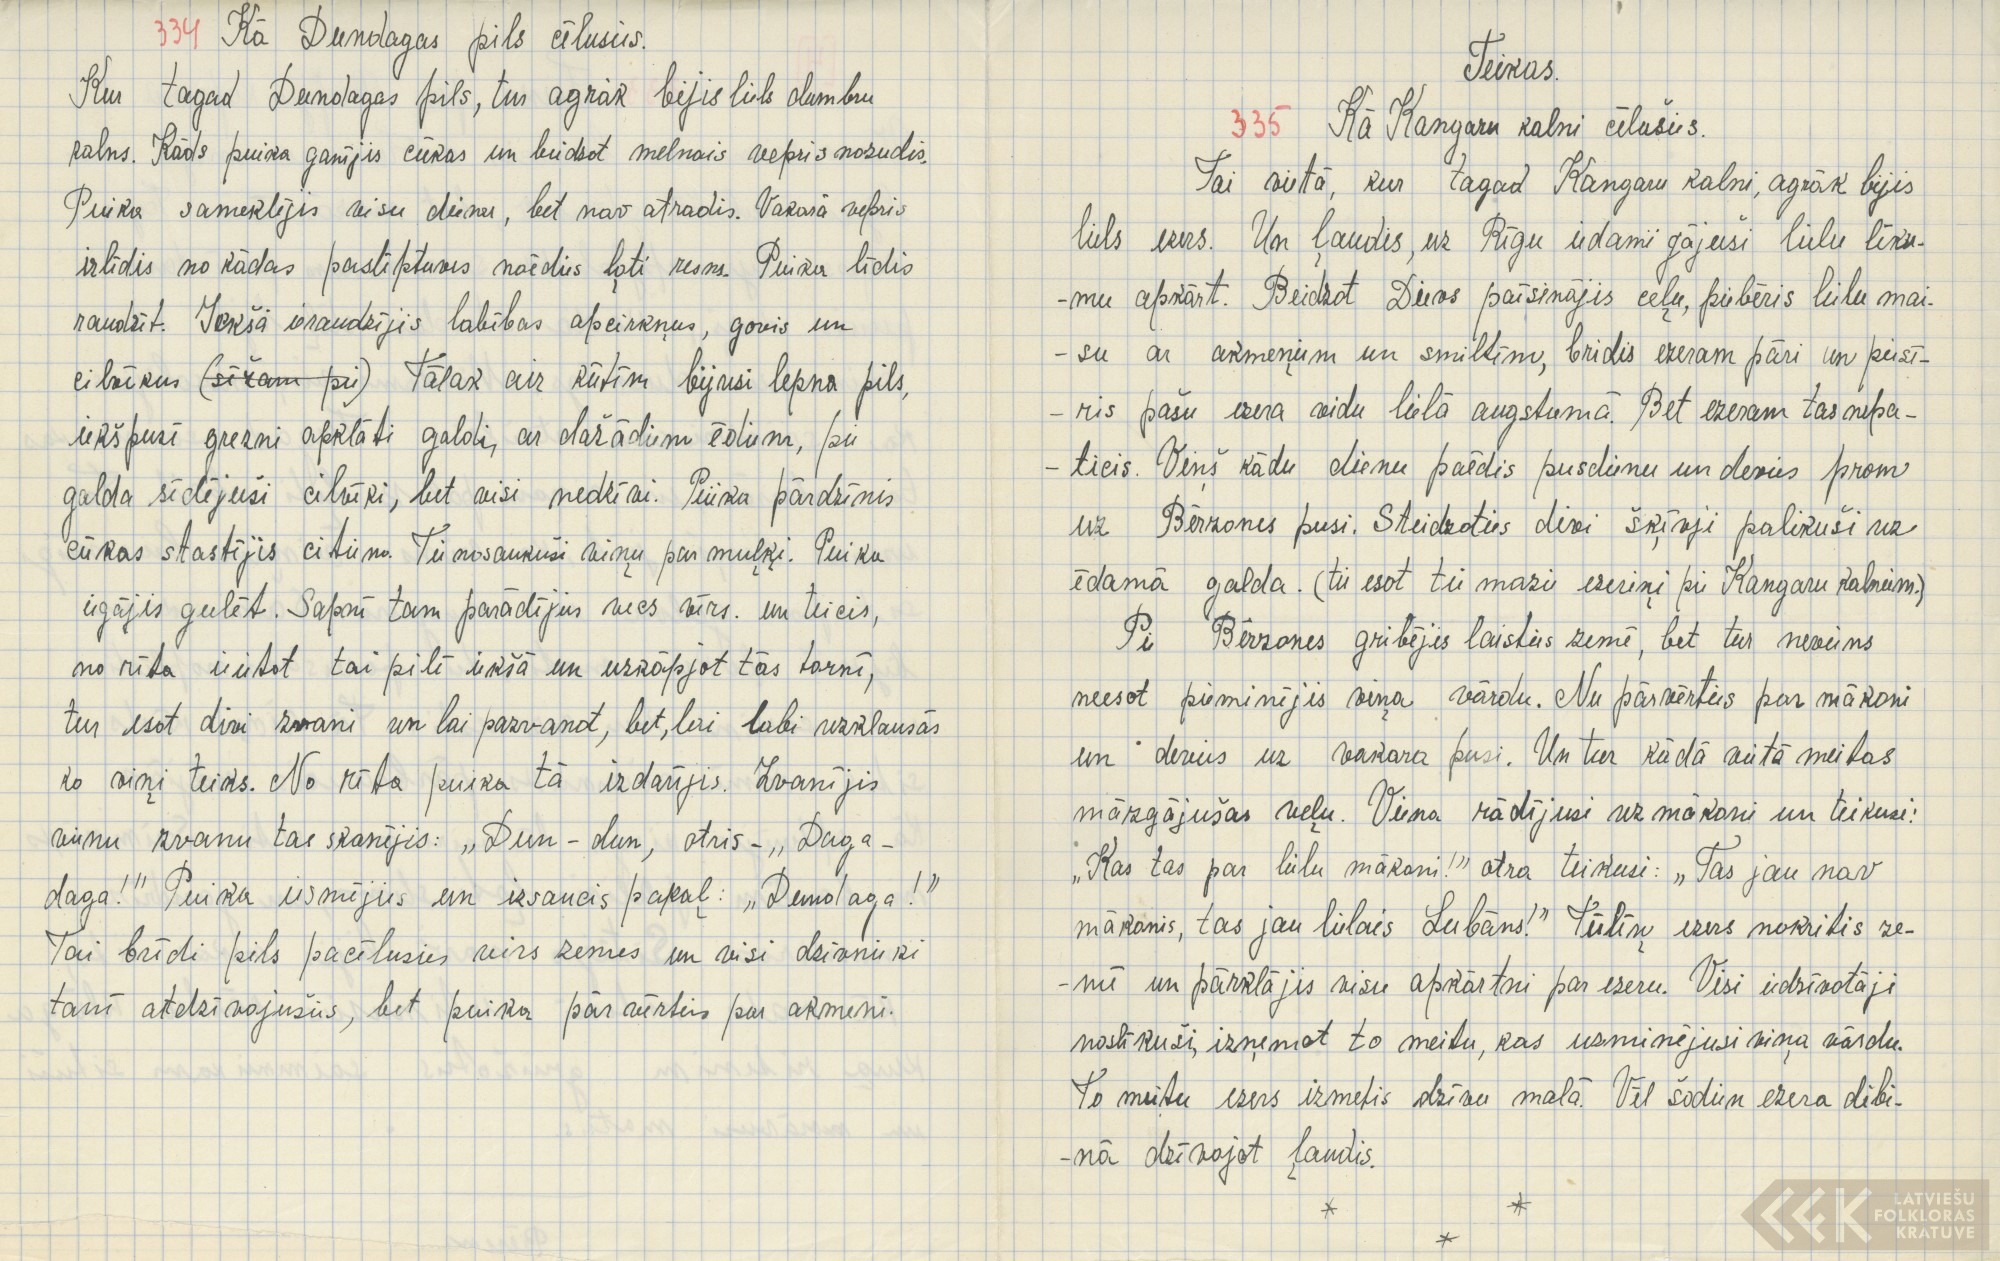 334 Kā Dundagas pils cēlusies.
Kur tagad Dundagas pils, tur agrāk bijis liels dumbru
kalns. Kāds puika ganījis cūkas un beidzot melnais vepris nozudis.
Puika sameklējis visu dienu, bet nav atradis. Vakarā vepris
izlīdis no kādas paslēptuves noēdies ļoti resns. Puika līdis
raudzīt. Iekšā ieraudzījis labības apcirkņus, govis un
cilvēkus (sēžam pie) Tālāk aiz kūtīm bijusi lepna pils,
iekšpusē grezni apklāti galdi, ar dažādiem ēdiem, pie
galda sēdējuši cilvēki, bet visi nedzīvi. Puika pārdzinis
cūkas stastījis citiem. Tie nosaukuši viņu par muļķi. Puika
iegājis gulēt. Sapnī tam parādījies vecs vīrs. un teicis,
no rīta ieietot tai pilī iekšā un uzkāpjot tās tornī,
tur esot divi zvani un lai pazvanot, bet, lai labi uzklausās
ko viņi teiks. No rīta puika tā izdarījis. Zvanījis
vienu zvanu tas skanējis: „Dun-dun, otris-„ Daga-
daga!” Puika iesmējies un izsaucis pakaļ: „Dundaga!”
Tai brīdī pils pacēlusies virs zemes un visi dzīvnieki
tanī atdzīvojušies, bet puika pārvērties par akmeni.
Teikas.
335 Kā Kangaru kalni cēlušies.
Tai vietā, kur tagad Kangaru kalni, agrāk bijis
liels ezers. Un ļaudis, uz Rīgu iedami gājuši lielu līku-
-mu apkārt. Beidzot Dievs paīsinājis ceļu, piebēris lielu mai-
-su ar akmeņiem un smiltīm, bridis ezeram pāri un piesē-
-ris pašu ezera vidu lielā augstumā. Bet ezeram tas nepa-
-ticis. Viņš kādu dienu paēdis pusdienu un devies prom
uz Bērzones pusi. Steidzoties divi šķīvji palikuši uz
ēdamā galda. (tie esot tie mazie ezeriņi pie Kangaru kalniem.)
Pie Bērzones gribējis laisties zemē, bet tur neviens
neesot pieminējis viņa vārdu. Nu pārvērties par mākoni
un devies uz vakara pusi. Un tur kādā vietā meitas
māzgājušas veļu. Viena rādījusi uz mākoni un teikusi:
„Kas tas par lielu mākoni!” otra teikusi: „Tas jau nav
mākonis, tas jau lielais Lubāns!” Tūlīņ ezers nokritis ze-
-mē un pārklājis visu apkārtni par ezeru. Visi iedzīvotāji
noslīkuši, izņemot to meitu, kas uzminējusi viņa vārdu.
To meitu ezers izmetis dzīvu malā. Vēl šodien ezera dibi-
-nā dzīvojot ļaudis.
* *
*
LATVIEŠU
FOLKLORAS
KRATUVE